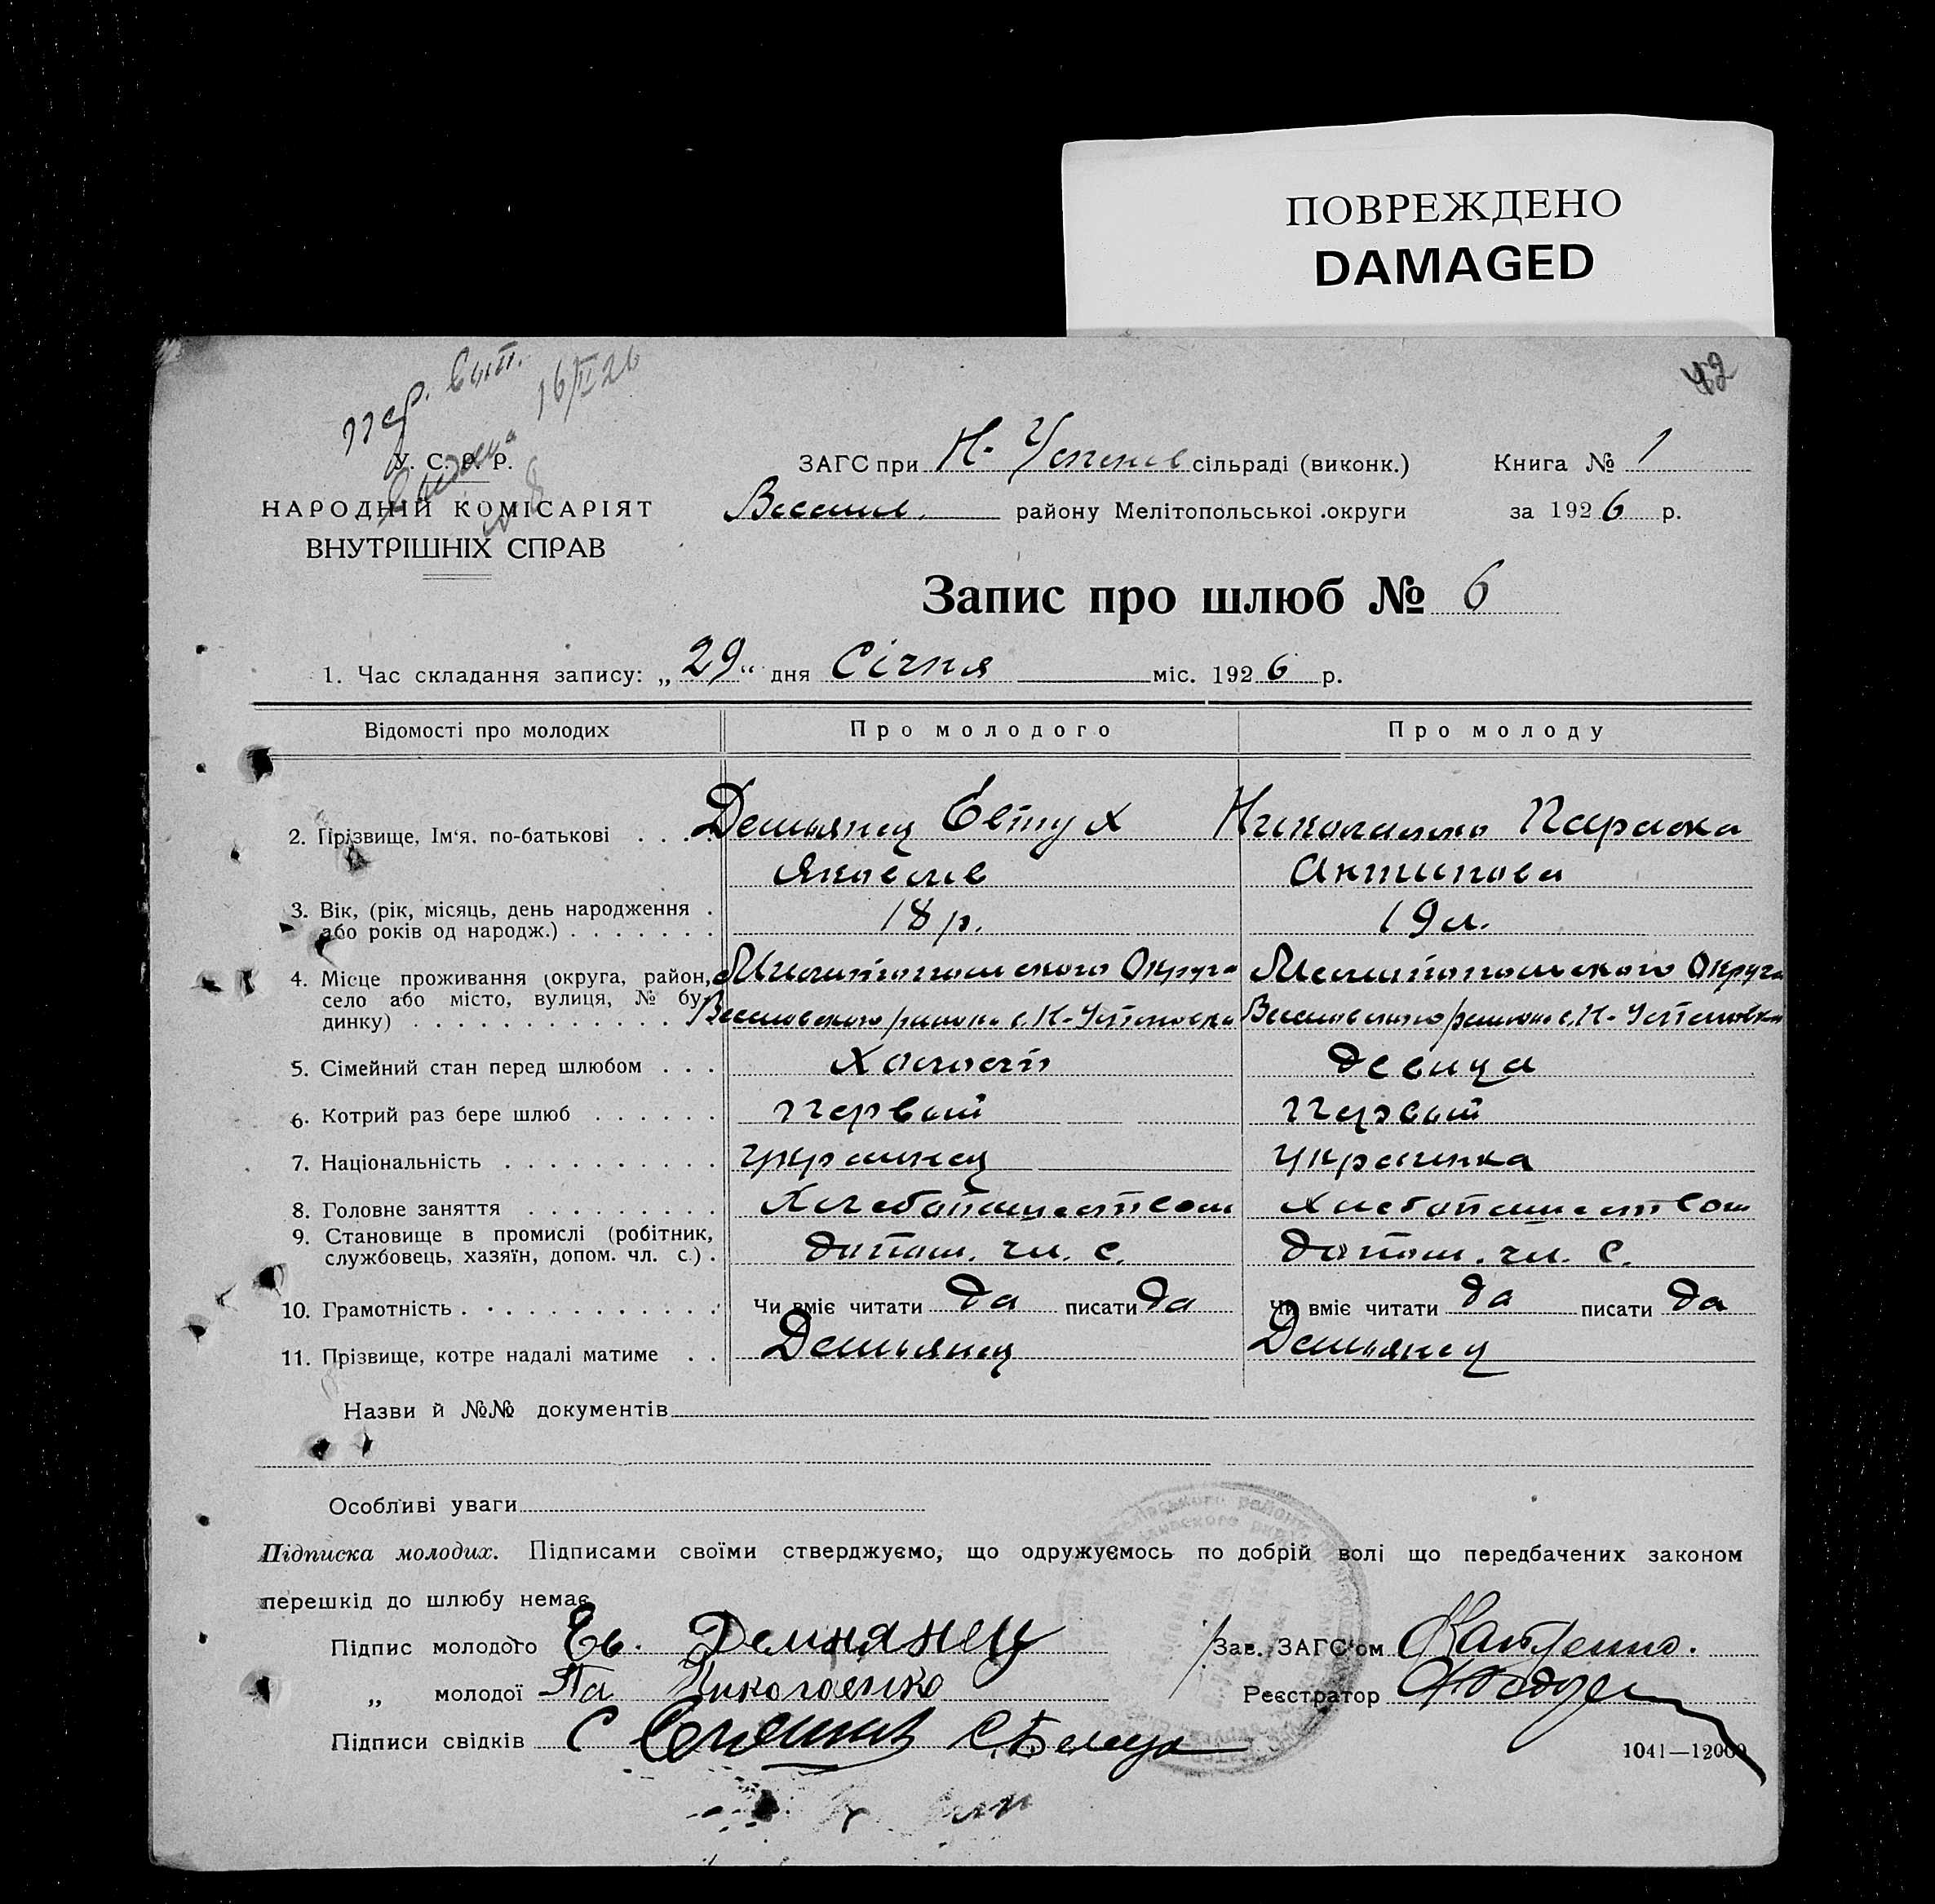 ПОВРЕЖДЕНО
DAMAGED
42
16/II 26
У. С. Р. Р.
НАРОДНІЙ КОМІСАРІЯТ
ВНУТРІШНІХ СПРАВ
ЗАГС при Н-Успенів сільраді (виконк.) Книга № 1
Веселів. району Мелітопольської округи за 1926 р.
Запис про шлюб № 6
1. Час складання запису: „29“ дня Січня міс. 1926 р.
Відомості про молодих Про молодого Про молоду
2. Прізвище, Ім'я, по-батькові . . . . Демьянец Евтух Николаенко Параска
Яковлев Антипова
3. Вік, (рік, місяць, день народження . 18 р. 19 л.
або років од народж.) . . . . . . .
4. Місце проживання (округа, район, Мелитопольского Округа Мелитопольского Округа
село або місто, вулиця, № бу- Веселовского района с. Н-Успеновка Веселовского района с. Н-Успеновка
динку) . . . . . . . . . . . . .
5. Сімейний стан перед шлюбом . . . Холост девица
6. Котрий раз бере шлюб . . . . . . Первый Первый
7. Національність . . . . . . . . . . украинец украинка
8. Головне заняття . . . . . . . . . Хлебопашеством Хлебопашеством
9. Становище в промислі (робітник, допом. чл. с. допом. чл. с.
службовець, хазяїн, допом. чл. с.) .
10. Грамотність . . . . . . . . . . . . Чи вміє читати да писати да Чи вміє читати да писати да
11. Прізвище, котре надалі матиме . . Демьянец Демьянец
Назви й №№ документів
Особливі уваги
Підписка молодих. Підписами своїми стверджуємо, що одружуємось по добрій волі що передбачених законом
перешкід до шлюбу немає
Підпис молодого Ев. Демьянец Зав. ЗАГС'ом
„ молодої Па Николаенко Реєстратор
Підписи свідків С
1041—12000